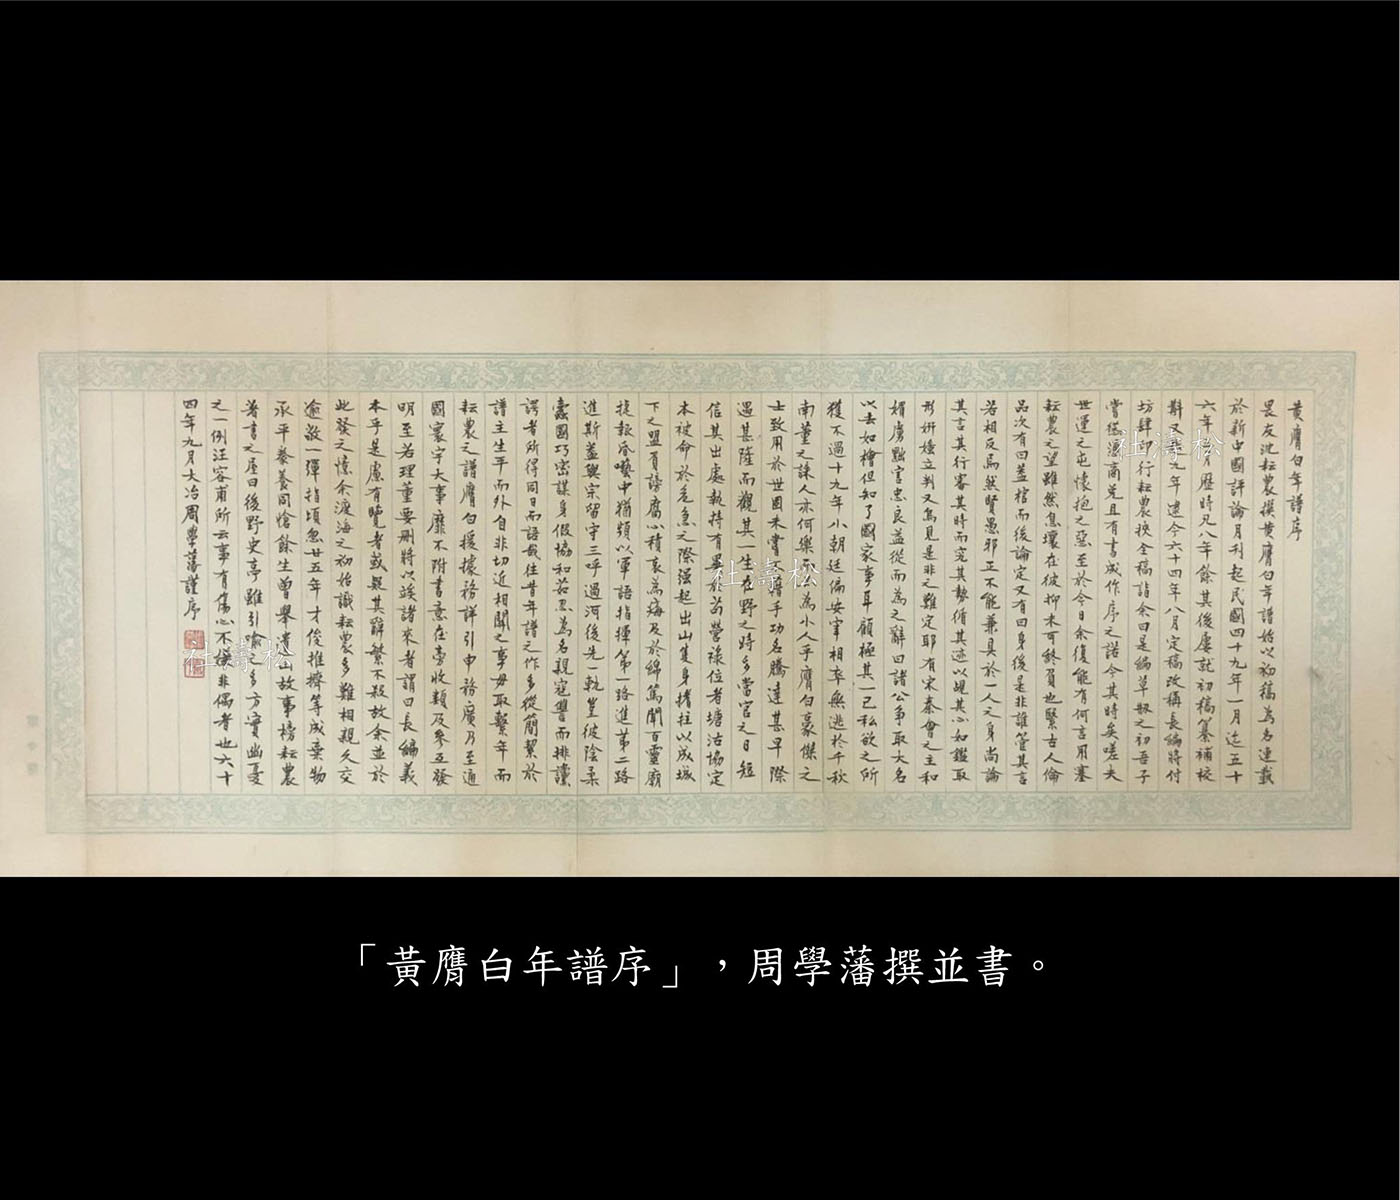 黃膺白年譜序
畏友沈耘農撰黃膺白年譜始以初稿為名連載
於新中國評論月刊起民國四十九年一月迄五十
六年 月歷時凡八年餘其後屢就初稿纂補校
斠又 九年逮今六十四年八月定稿改稱長編將付
坊肆印行耘農挾全稿詣余曰是編草剏之初吾子
嘗慫恿商兌且有書成作序之諾今其時矣嗟夫
世運之屯懷抱之惡至於今日余復能有何言用塞
耘農之望雖然息壤在彼抑未可終負也緊古人倫
品次有曰蓋棺而後論定又有曰身後是非誰管其言
若相反焉然賢愚邪正不能兼具於一人之身尚論
其言其行審其時而究其勢循其迹以覘其心如鑑取
形妍媸立判又烏見是非之難定耶有宋秦會之主和
媚虜黜害忠良益從而為之辭曰諸公爭取大名
以去如檜但知了國家事耳顧極其一己私欲之所
獲不過十九年小朝廷偏安宰相卒無逃於千秋
南董之誅人亦何樂而為小人乎膺白豪傑之
士致用於世固未嘗不藉手功名騰達甚早際
遇甚隆而觀其一生在野之時多當官之日短
信其出處執持有異於苟營祿位者塘沽協定
本被命於危急之際強起出山隻身撐拄以成城
下之盟負謗腐心積哀為痗及於綿篤聞百靈廟
捷報昏囈中猶頻以軍語指揮第一路進第二路
進斯蓋與宗留守三呼過河後先一軌豈彼陰柔
蠹國巧密謀身假協和茹忍為名親寇讐而排讜
諤者所得同日而語哉往昔年譜之作多從簡絜於
譜主生平而外自非切近相關之事毋取繫年而
耘農之譜膺白援據務詳引申務廣乃至通
國寰宇大事靡不附書意在旁收類及參互發
明至若理董要刪將以竢諸來者謂曰長編義
本乎是慮有覽者或疑其辭繁不殺故余並於
此發之憶余渡海之初始識耘農多難相親久交
逾敬一彈指頃忽廿五年才俊推擠等成棄物
承平豢養同愴餘生曾舉遺山故事榜耘農
著書之屋曰後野史亭雖引喻之多方實幽憂
之一例汪容甫所云事有傷心不嫌非偶者也六十
四年九月大冶周學藩謹序
杜濤松
杜濤松
杜濤松
「黃膺白年譜序」，周學藩撰並書。